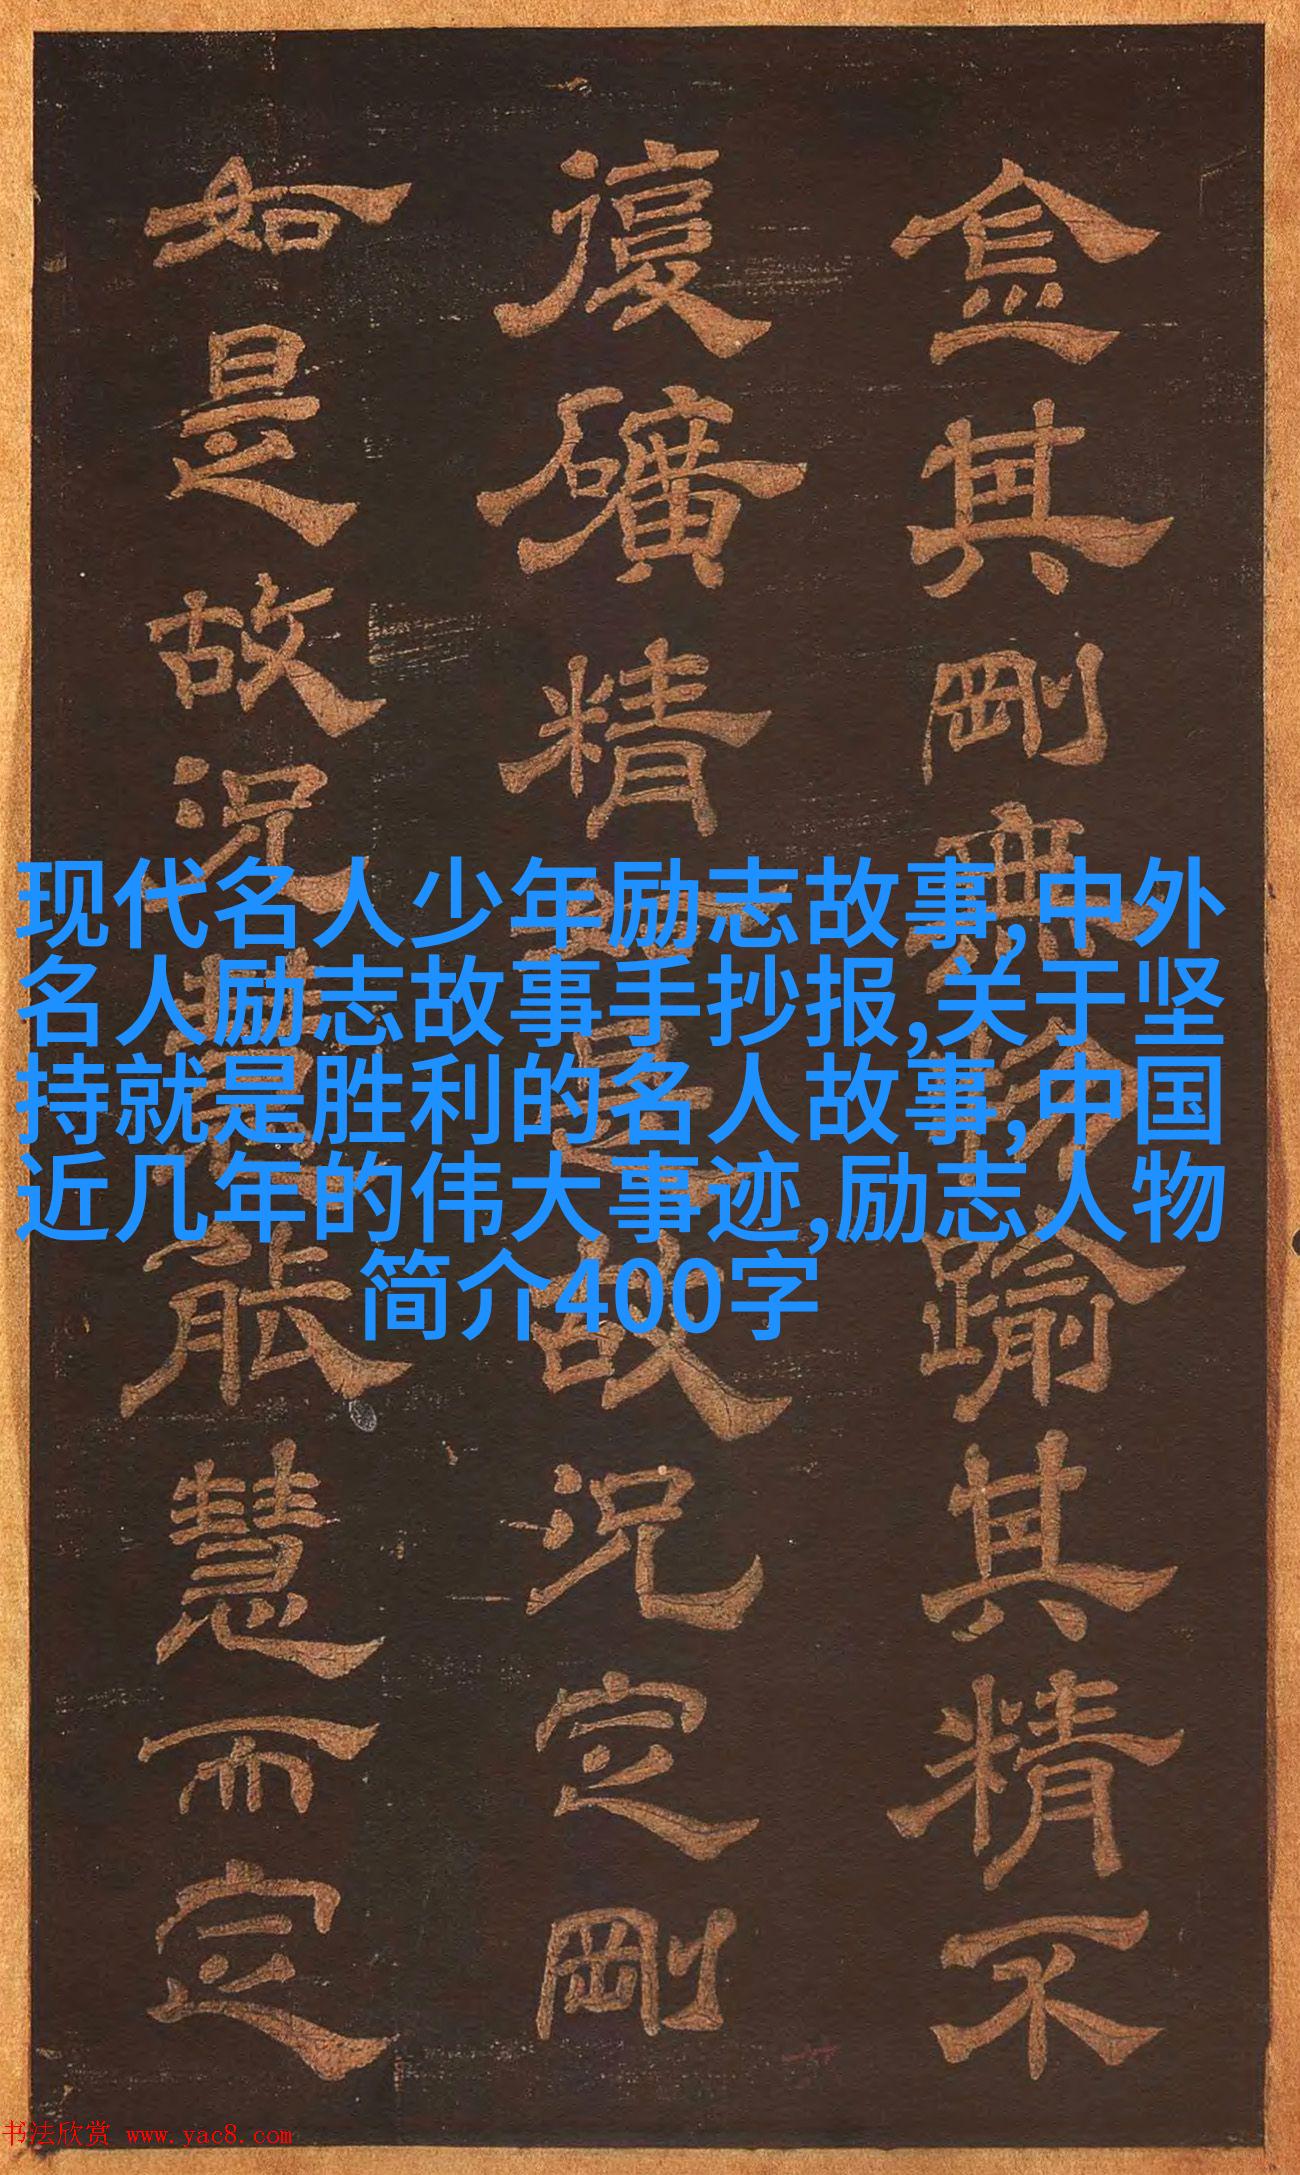 金其剛無物踰其精不
復礦精是故況定剛
如是故況能慧而定
现代名人少年励志故事,中外
名人励志故事手抄报,关于坚
持就是胜利的名人故事,中国
近几年的伟大事迹,励志人物
简介400字
书法欣赏 www.yac8.com